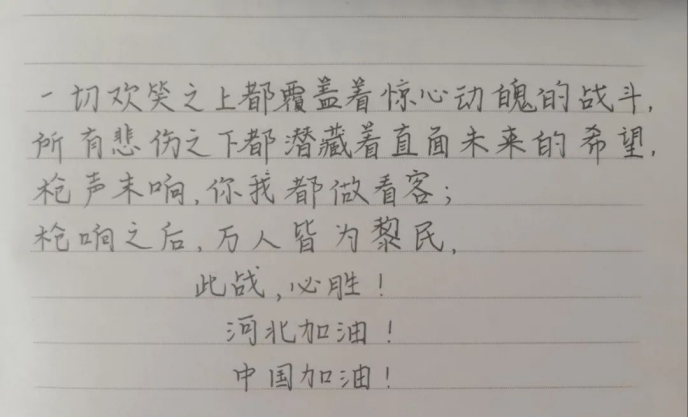 一切欢笑之上都覆盖着惊心动魄的战斗,
所有悲伤之下都潜藏着直面未来的希望,
枪声未响,你我都做看客;
枪响之后,万人皆为黎民,
此战,必胜!
河北加油!
中国加油!